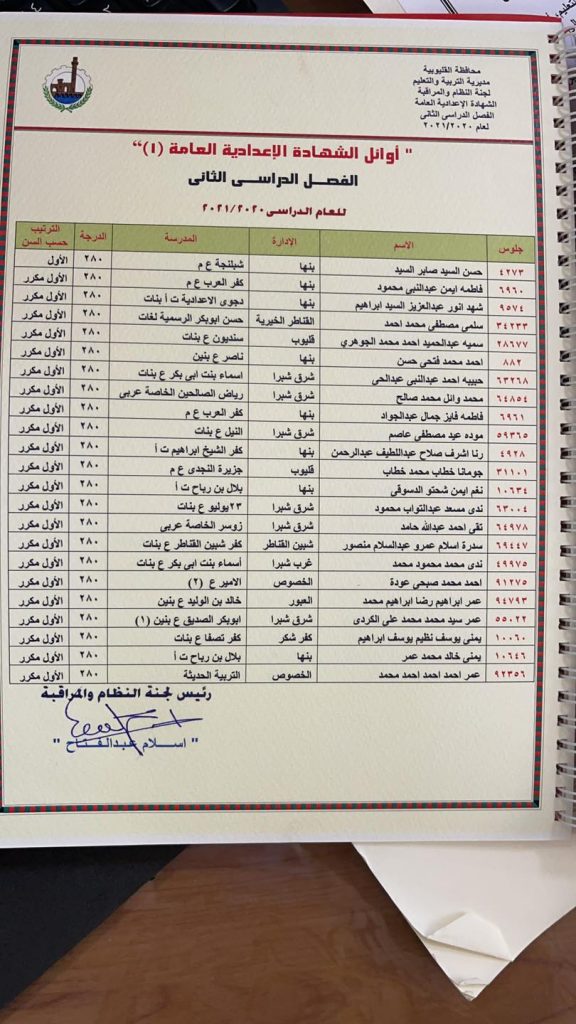 محافظة القليوبية
مديرية التربية والتعليم
لجنة النظام والمراقبة
الشهادة الإعدادية العامة
الفصل الدراسى الثانى
لعام ٢٠٢١/٢٠٢٠
" أوائل الشهادة الإعدادية العامة (١)"
الفصل الدراسى الثانى
للعام الدراسى ٢٠٢١/٢٠٢٠
جلوس الاسم الإدارة المدرسة الدرجة الترتيب حسب السن
٤٢٧٣ حسن السيد صابر السيد بنها شبلنجة ع م ٢٨٠ الأول
٦٩٦٠ فاطمه ايمن عبدالنبى محمود بنها كفر العرب ع م ٢٨٠ الأول مكرر
٩٥٧٤ شهد انور عبدالعزيز السيد ابراهيم بنها دجوى الاعدادية ت أ بنات ٢٨٠ الأول مكرر
٣٤٢٣٣ سلمى مصطفى محمد احمد القناطر الخيرية حسن ابوبكر الرسمية لغات ٢٨٠ الأول مكرر
٢٨٦٧٧ سميه عبدالحميد احمد محمد الجوهري قليوب سنديون ع بنات ٢٨٠ الأول مكرر
٨٨٢ احمد محمد فتحى حسن بنها ناصر ع بنين ٢٨٠ الأول مكرر
٦٣٢٦٨ حبيبه احمد عبدالنبى عبدالحى شرق شبرا اسماء بنت ابى بكر ع بنات ٢٨٠ الأول مكرر
٦٤٨٥٤ محمد وائل محمد صالح شرق شبرا رياض الصالحين الخاصة عربى ٢٨٠ الأول مكرر
٦٩٦١ فاطمه فايز جمال عبدالجواد بنها كفر العرب ع م ٢٨٠ الأول مكرر
٥٩٣٦٥ موده عيد مصطفى عاصم شرق شبرا النيل ع بنات ٢٨٠ الأول مكرر
٤٩٢٨ رنا اشرف صلاح عبداللطيف عبدالرحمن بنها كفر الشيخ ابراهيم ت أ ٢٨٠ الأول مكرر
٣١١٠١ جومانا خطاب محمد خطاب قليوب جزيرة النجدى ع م ٢٨٠ الأول مكرر
١٠٦٣٤ نغم ايمن شحتو الدسوقى بنها بلال بن رباح ت أ ٢٨٠ الأول مكرر
٦٣٠٠٤ ندى مسعد عبدالتواب محمود شرق شبرا ٢٣يوليو ع بنات ٢٨٠ الأول مكرر
٦٤٩٧٨ تقى احمد عبدالله حامد شرق شبرا زوسر الخاصة عربى ٢٨٠ الأول مكرر
٦٩٤٤٧ سدرة اسلام عمرو عبدالسلام منصور شبين القناطر كفر شبين القناطر ع بنات ٢٨٠ الأول مكرر
٤٩٩٧٥ ندى محمد محمود محمد غرب شبرا أسماء بنت ابى بكر ع بنات ٢٨٠ الأول مكرر
٩١٢٧٥ احمد محمد صبحى عودة الخصوص الامير ع (٢) ٢٨٠ الأول مكرر
٩٤٧٩٣ عمر ابراهيم رضا ابراهيم محمد العبور خالد بن الوليد ع بنين ٢٨٠ الأول مكرر
٥٥٠٢٢ عمر سيد محمد محمد على الكردى شرق شبرا ابوبكر الصديق ع بنين (١) ٢٨٠ الأول مكرر
١٠٠٦٠ يمنى يوسف نظيم يوسف ابراهيم كفر شكر كفر تصفا ع بنات ٢٨٠ الأول مكرر
١٠٦٤٦ يمنى خالد محمد عمر بنها بلال بن رباح ت أ ٢٨٠ الأول مكرر
٩٢٣٥٦ عمر احمد احمد احمد محمد الخصوص التربية الحديثة ٢٨٠ الأول مكرر
رئيس لجنة النظام والمراقبة
" اسلام عبدالفتاح "